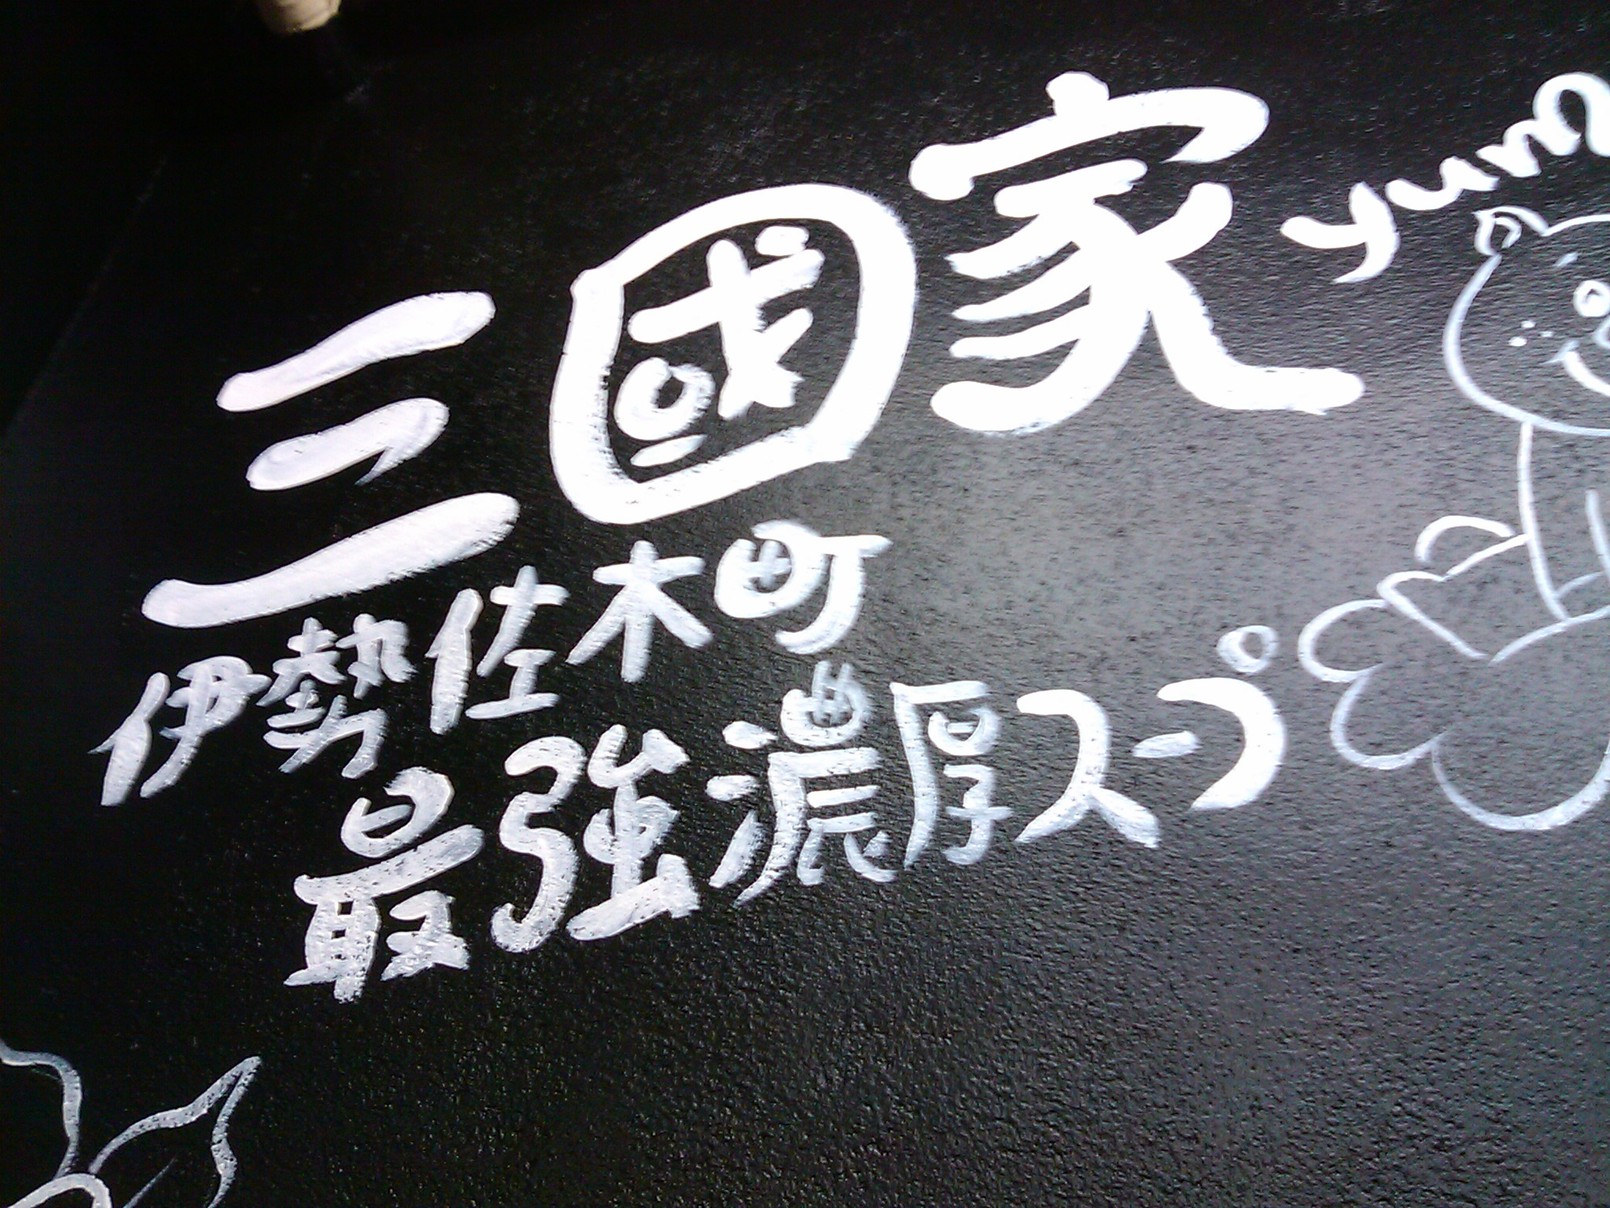 三國家
yum
伊勢佐木町
最強濃厚スープ